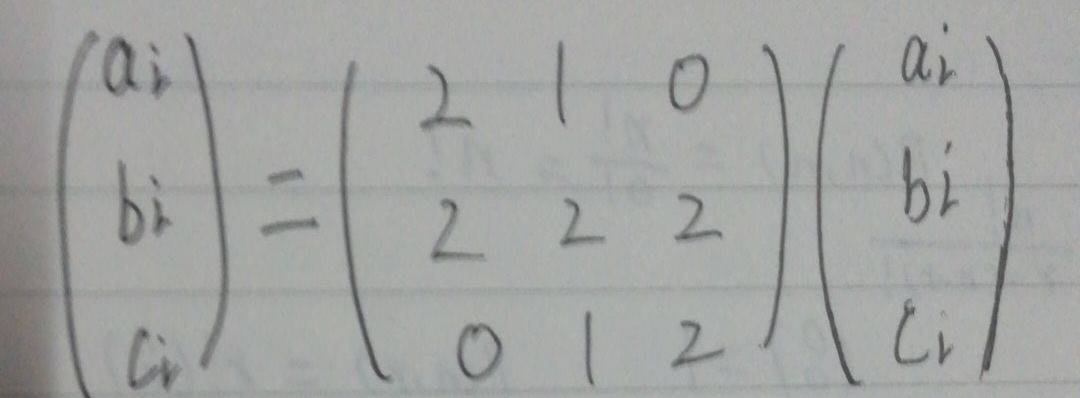 (ai bi ci) = (2 1 0 2 2 2 0 1 2) (ai bi ci)